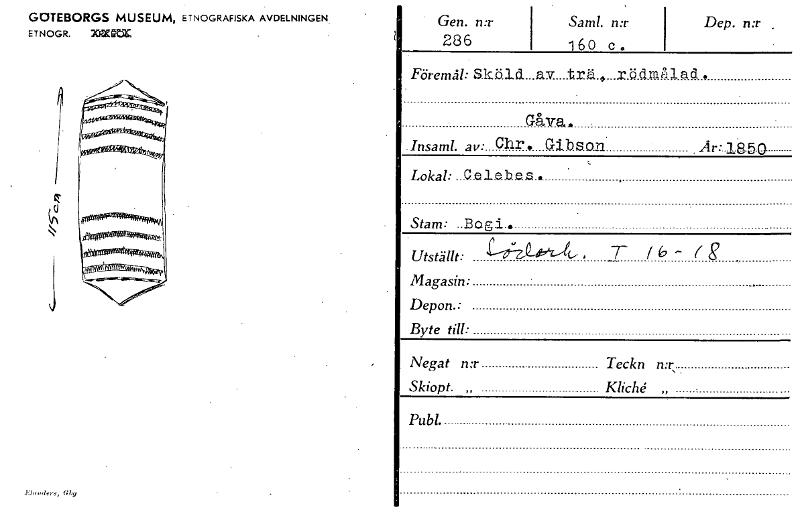 GÖTEBORGS MUSEUM, ETNOGRAFISKA AVDELNINGEN
ETNOGR.
115 cm
Elanders, Gbg
Gen. n:r Saml. n:r Dep. n:r
286 160 c.
Föremål: Sköld av trä, rödmålad.
Gåva.
Insaml. av: Chr. Gibson År: 1850
Lokal: Celebes.
Stam: Bogi.
Utställt: T 16-18
Magasin:
Depon.:
Byte till:
Negat n:r Teckn n:r
Skiopt. „ Kliché „
Publ.